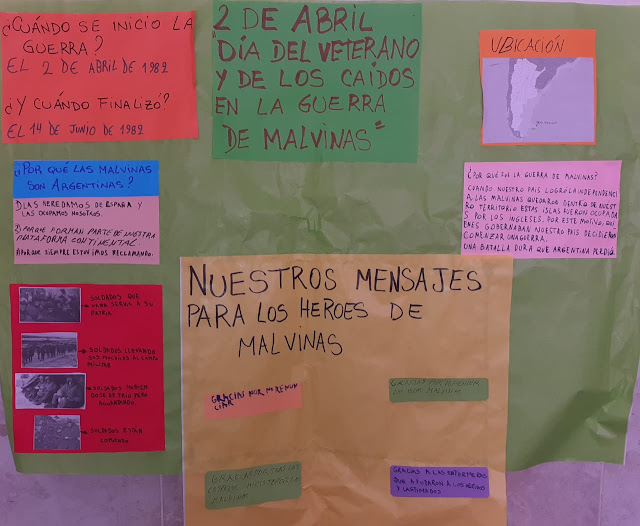 ¿CUÁNDO SE INICIO LA
GUERRA?
EL 2 DE ABRIL DE 1982
¿Y CUÁNDO FINALIZÓ?
EL 14 DE JUNIO DE 1982
2 DE ABRIL
"DÍA DEL VETERANO
Y DE LOS CAÍDOS
EN LA GUERRA
DE MALVINAS"
UBICACIÓN
¿POR QUÉ LAS MALVINAS
SON ARGENTINAS?
1) LAS HEREDAMOS DE ESPAÑA Y
LAS OCUPAMOS NOSOTROS.
2) PORQUE FORMAN PARTE DE NUESTRA
PLATAFORMA CONTINENTAL
PORQUE SIEMPRE ESTUVIMOS RECLAMANDO.
¿POR QUÉ FUE LA GUERRA DE MALVINAS?
CUANDO NUESTRO PAIS LOGRÓ LA INDEPENDENCI
A, LAS MALVINAS QUEDARON DENTRO DE NUEST
RO TERRITORIO ESTAS ISLAS FUERON OCUPADA
S POR LOS INGLESES. POR ESTE MOTIVO, QUI
ENES GOBERNABAN NUESTRO PAÍS DECIDIERON
COMENZAR UNA GUERRA.
UNA BATALLA DURA QUE ARGENTINA PERDIÓ.
SOLDADOS QUE
SERVIR A SU
PATRIA
SOLDADOS LLEVANDO
SUS MOCHILAS AL CAMPO
MILITAR
SOLDADOS
DOSE DE FRÍO PERO
AGUANTANDO.
SOLDADOS ESTÁN
COMIENDO
NUESTROS MENSAJES
PARA LOS HEROES DE
MALVINAS
GRACIAS POR NO RENUN
CIAR
GRACIAS POR
MALVINAS
GRACIAS POR
MALVINAS
GRACIAS A LAS ENFERMERAS
QUE AYUDARON A LOS HERIDOS
Y LASTIMADOS